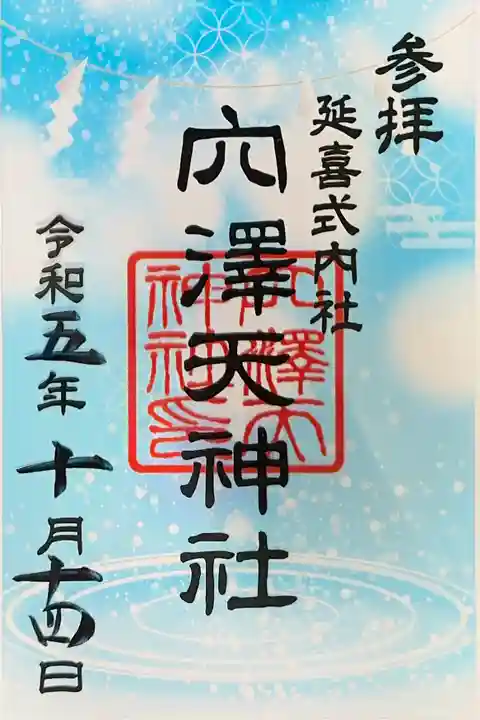 参拝
延喜式内社
穴澤天神社
穴澤天
神社印
令和五年十月十四日